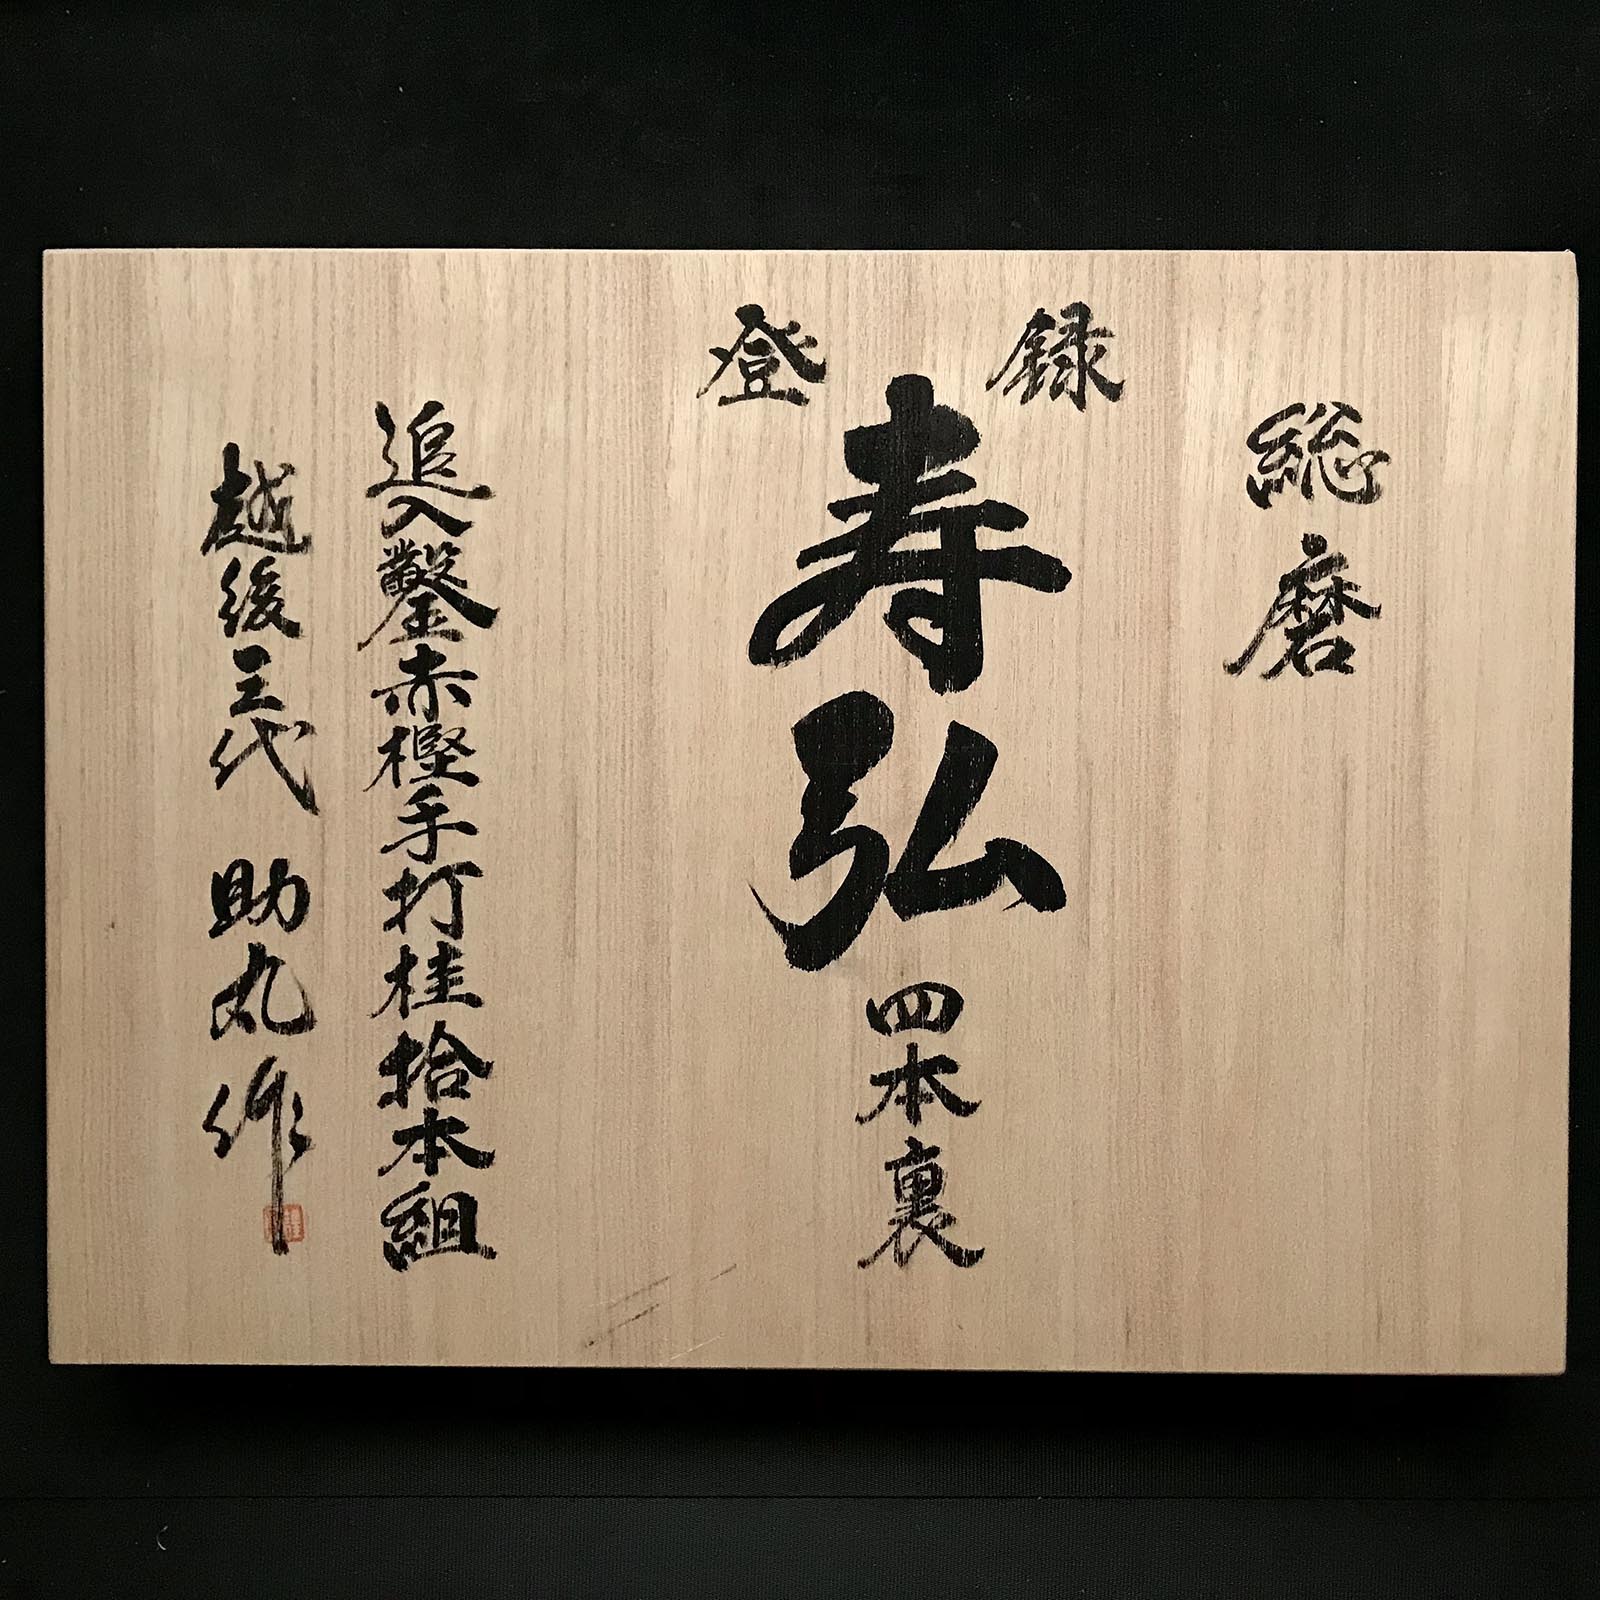 総磨
登録
寿弘
四本裏
追入鑿赤樫手打桂拾本組
越後三代 助丸作